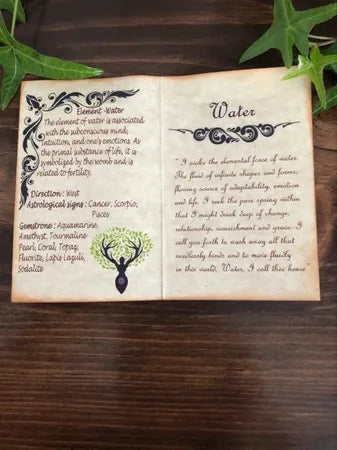 Element -Water
The element of water is associated
with the subconscious mind,
intuition, and one's emotions. As
the primal substance of life, it is
symbolized by the womb and is
related to fertility.
Direction : West
Astrological signs : Cancer, Scorpio,
Pisces
Gemstrone : Aquamarine,
Amethyst, Tourmaline
Pearl, Coral, Topaz,
Fluorite, Lapis Lazuli,
Sodalite
Water
" I evoke the elemental force of water.
The fluid of infinite shapes and forms,
flowing source of adaptability, emotion
and life. I seek the pure spring within
that I might drink deep of change,
relationship, nourishment and grace. I
call you forth to wash away all that
needlessly binds and to move fluidly
in this world. Water, I call thee hence